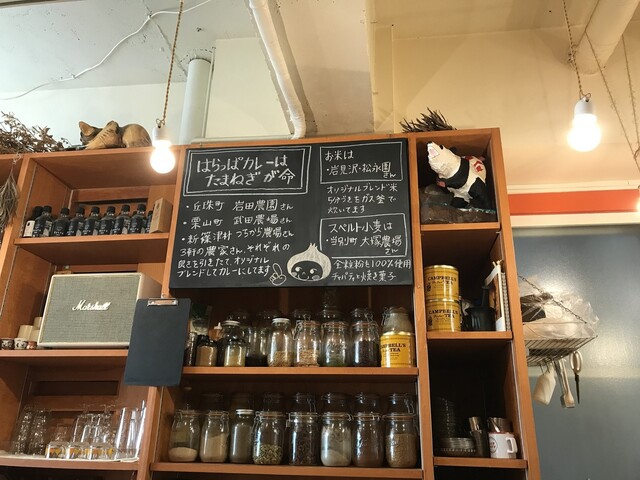 はらっぱカレーは
たまねぎが命
・丘珠町 岩田農園さん
・栗山町 武田農場さん
・新篠津村 つちから農場さん
3軒の農家さん、それぞれの
良さを引きたて、オリジナル
ブレンドしてカレーにしてます
お米は
・岩見沢・松永園さん
オリジナルブレンド米
5分づきをガス釜で
炊いてます
スペルト小麦は
・当別町 大塚農場さん
全粒粉を100%使用
チャパティと焼き菓子
Marshall
CAMPBELL'S
CAMPBELL'S
TEA